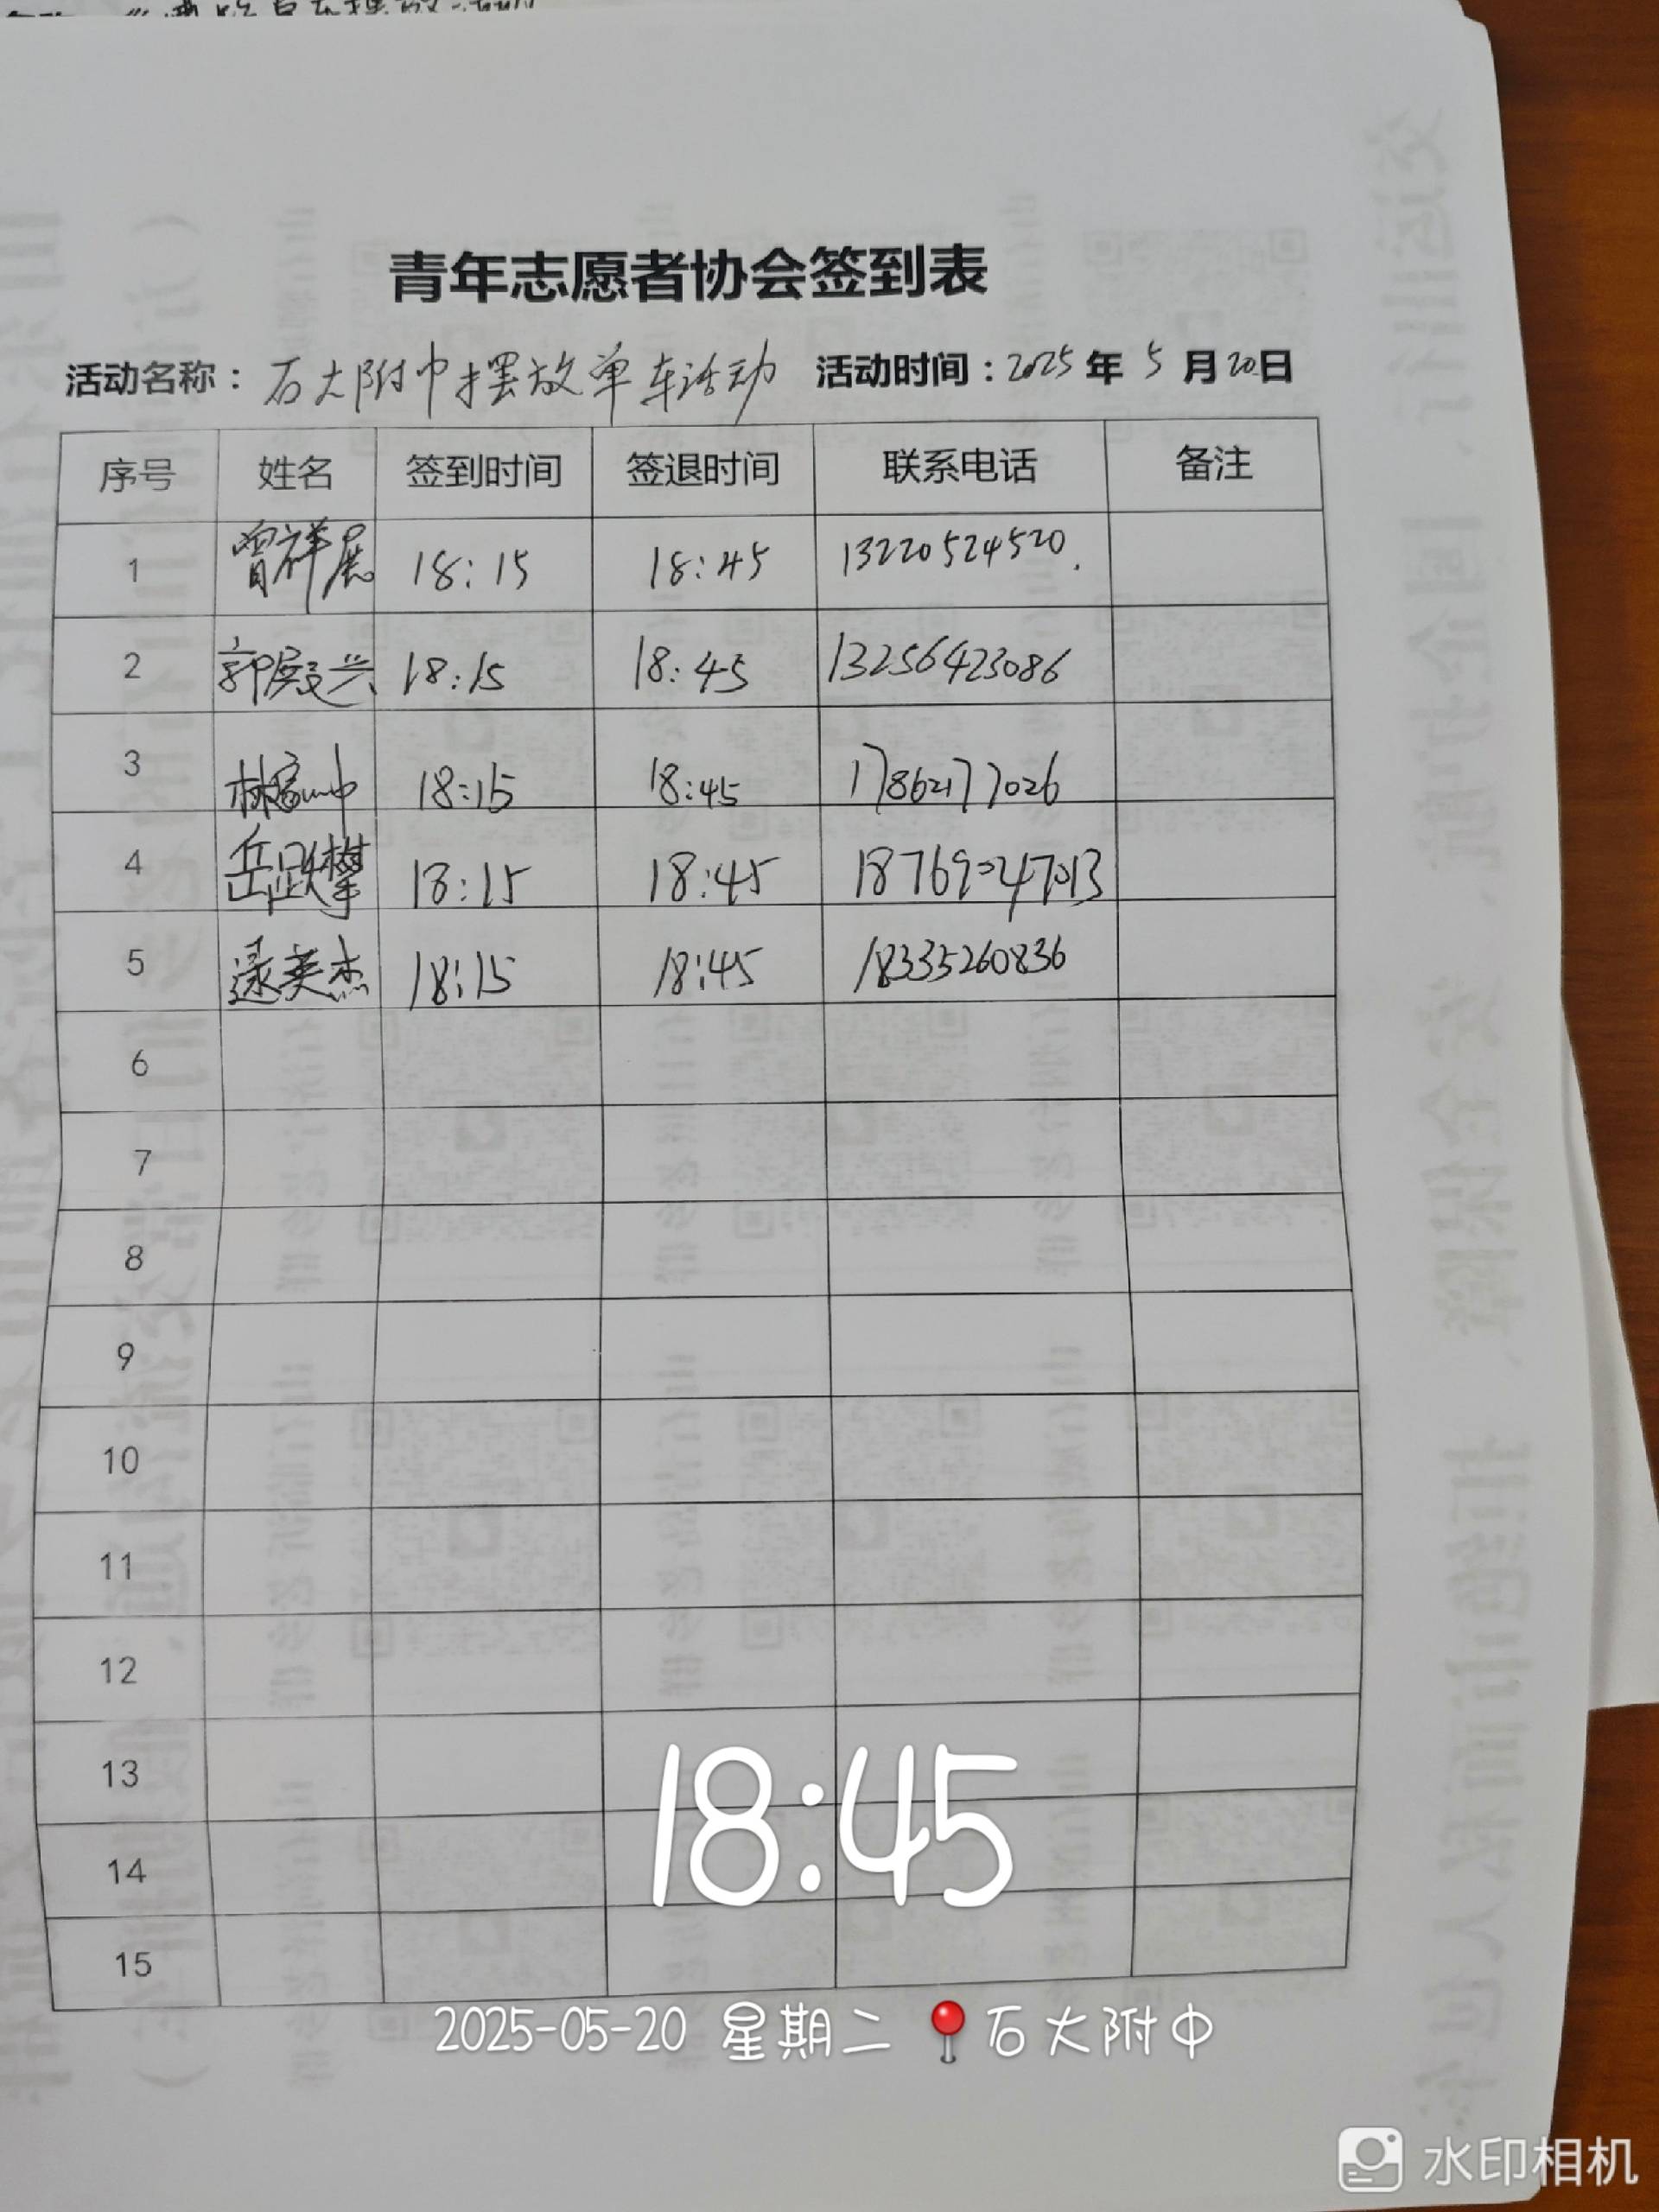 青年志愿者协会签到表
活动名称：石大附中摆放单车活动 活动时间：2025年5月20日
序号 姓名 签到时间 签退时间 联系电话 备注
1 曾祥展 18:15 18:45 13220524520.
2 郭殿兴 18:15 18:45 13256423086
3 18:15 18:45 17862177026
4 岳跃攀 18:15 18:45 18769047013
5 逯英杰 18:15 18:45 18335260836
6
7
8
9
10
11
12
13
14
15
18:45
2025-05-20 星期二 石大附中
水印相机